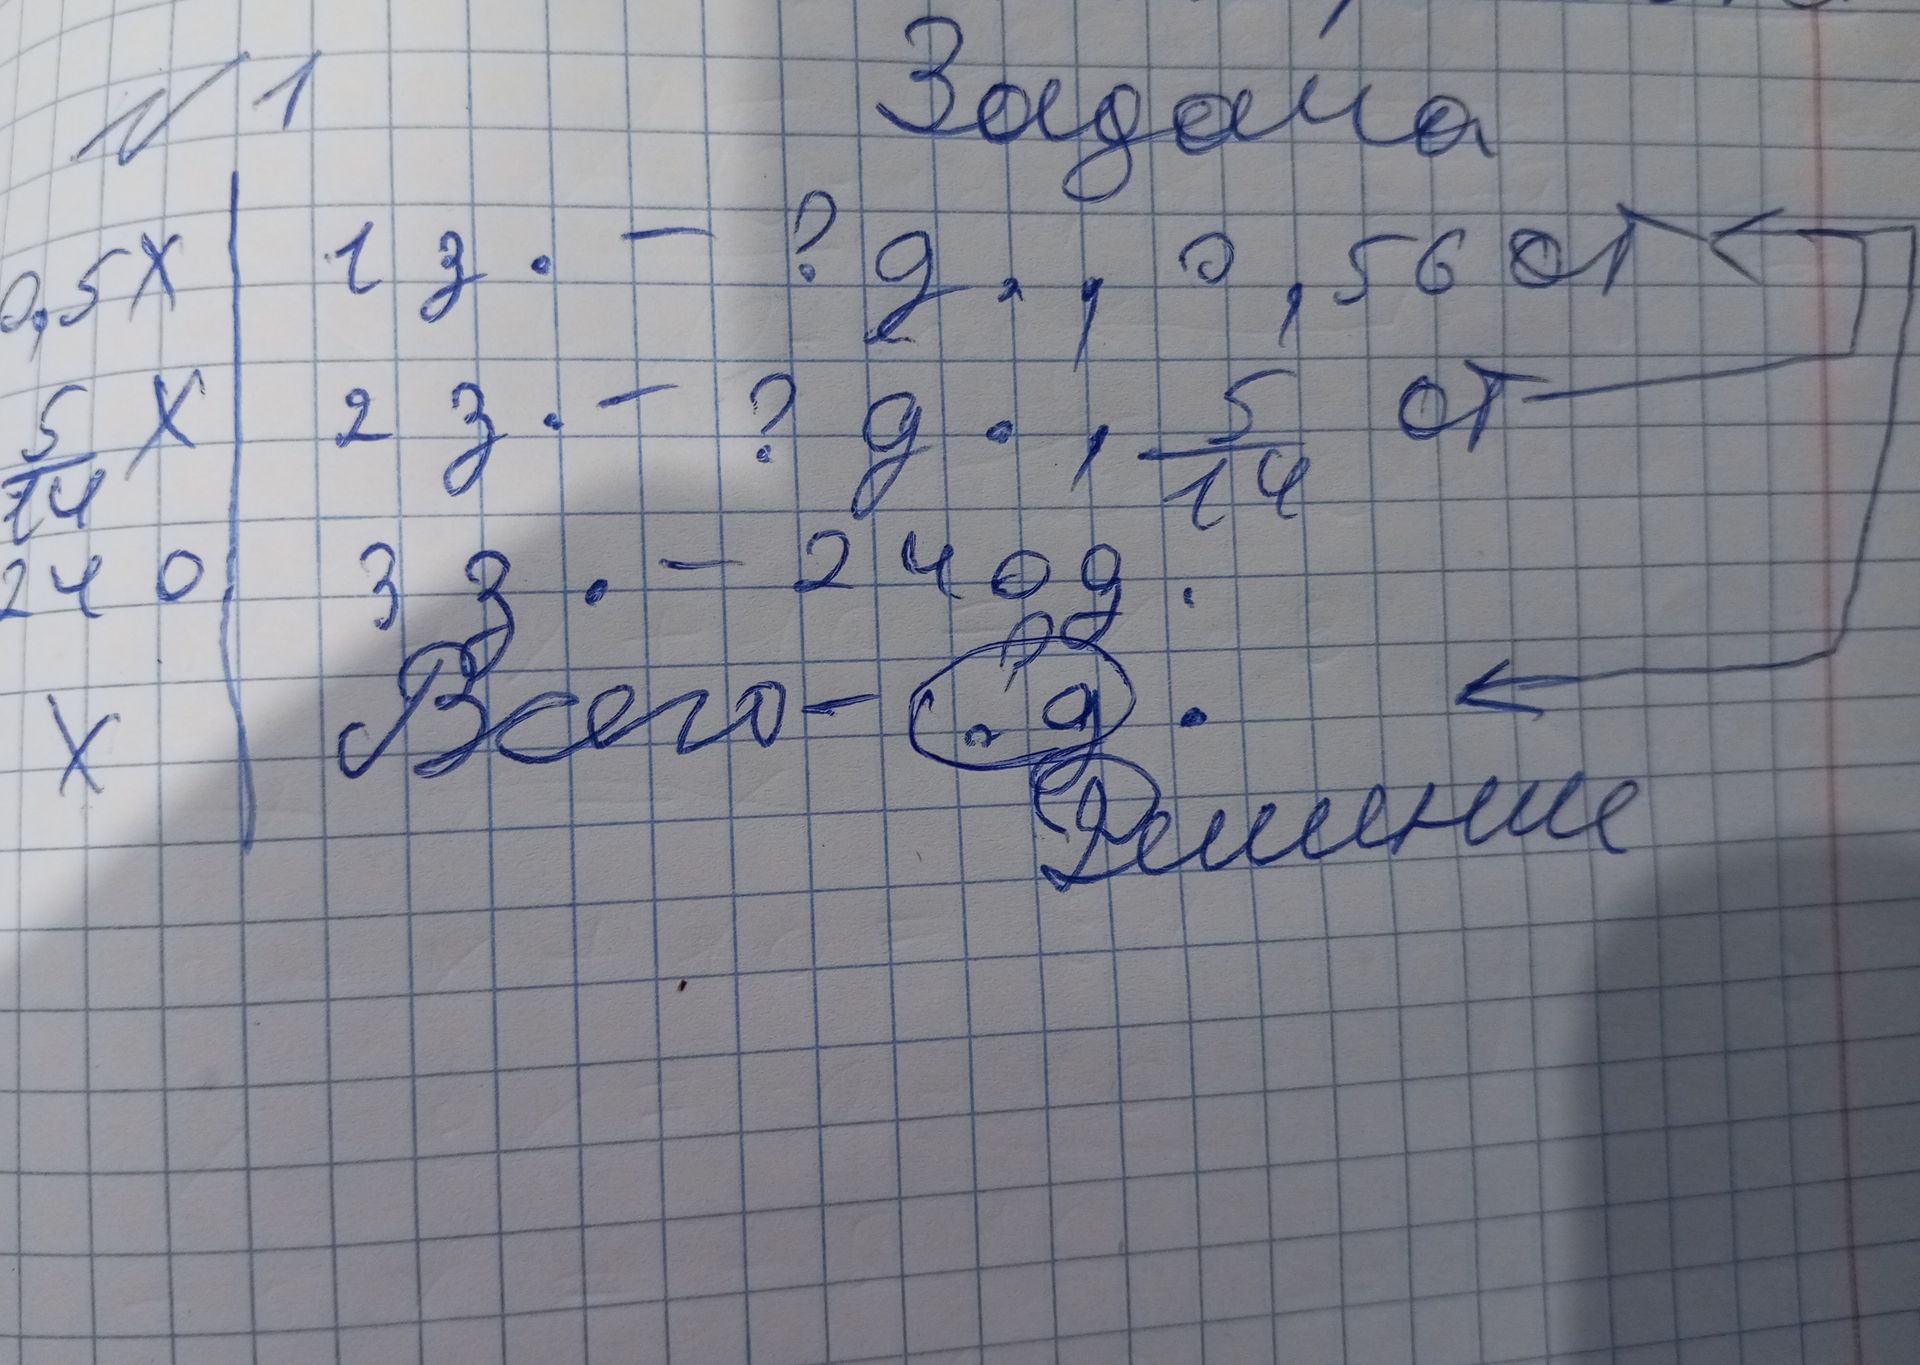 № 1 Задача
0,5x 1 з. - ? д., 0,56 от
5/14 x 2 з. - ? д., 5/14 от
240 3 з. - 240 д.
x Всего - ? д.
Решение